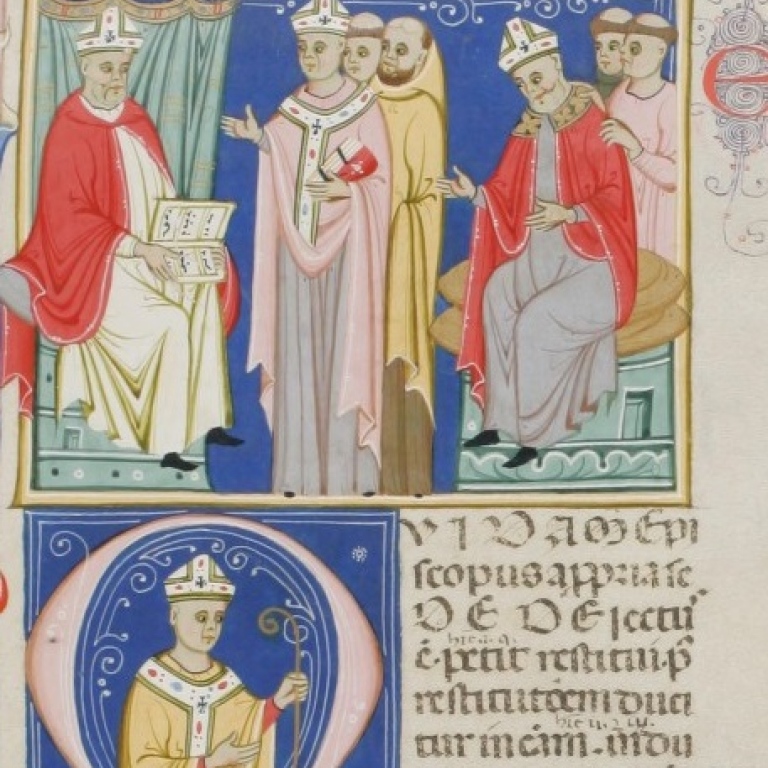 QVIDAM Epi
scopus a ppria se
DE DEiectus
ē. petit restitui. p
restitutōem duci
tur in cām. indu
e